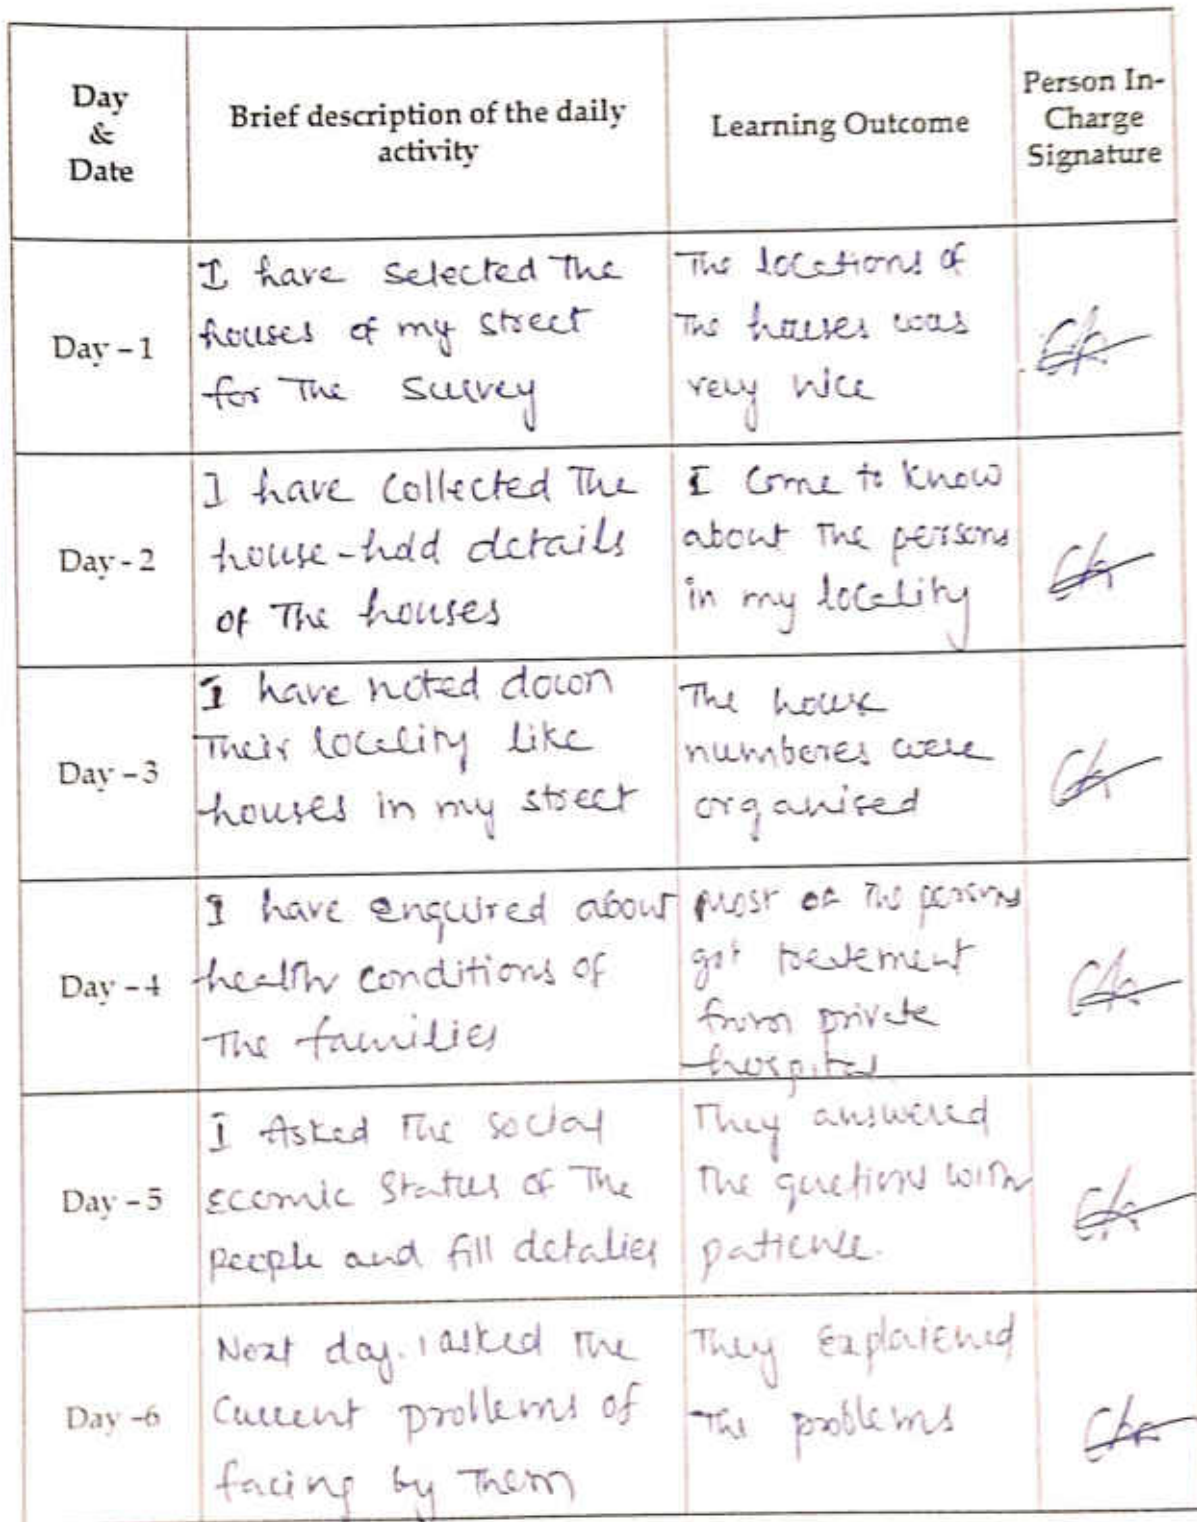 Day
&
Date
Brief description of the daily
activity
Learning Outcome
Person In-
Charge
Signature
Day - 1
I have selected the
houses of my street
for The survey
The locations of
The houses was
very nice
Day - 2
I have collected The
house-hold details
of The houses
I come to know
about The persons
in my locality
Day - 3
I have noted down
Their locality like
houses in my street
The house
numberes were
organised
Day - 4
I have enquired about
health conditions of
The families
Most of The persons
got
from private
hospital
Day - 5
I Asked The social
Ecomic Status of The
people and fill detalies
They answered
The quetions with
patience.
Day -6
Next day. I asked The
Current problems of
facing by Them
They Explaiened
The problems